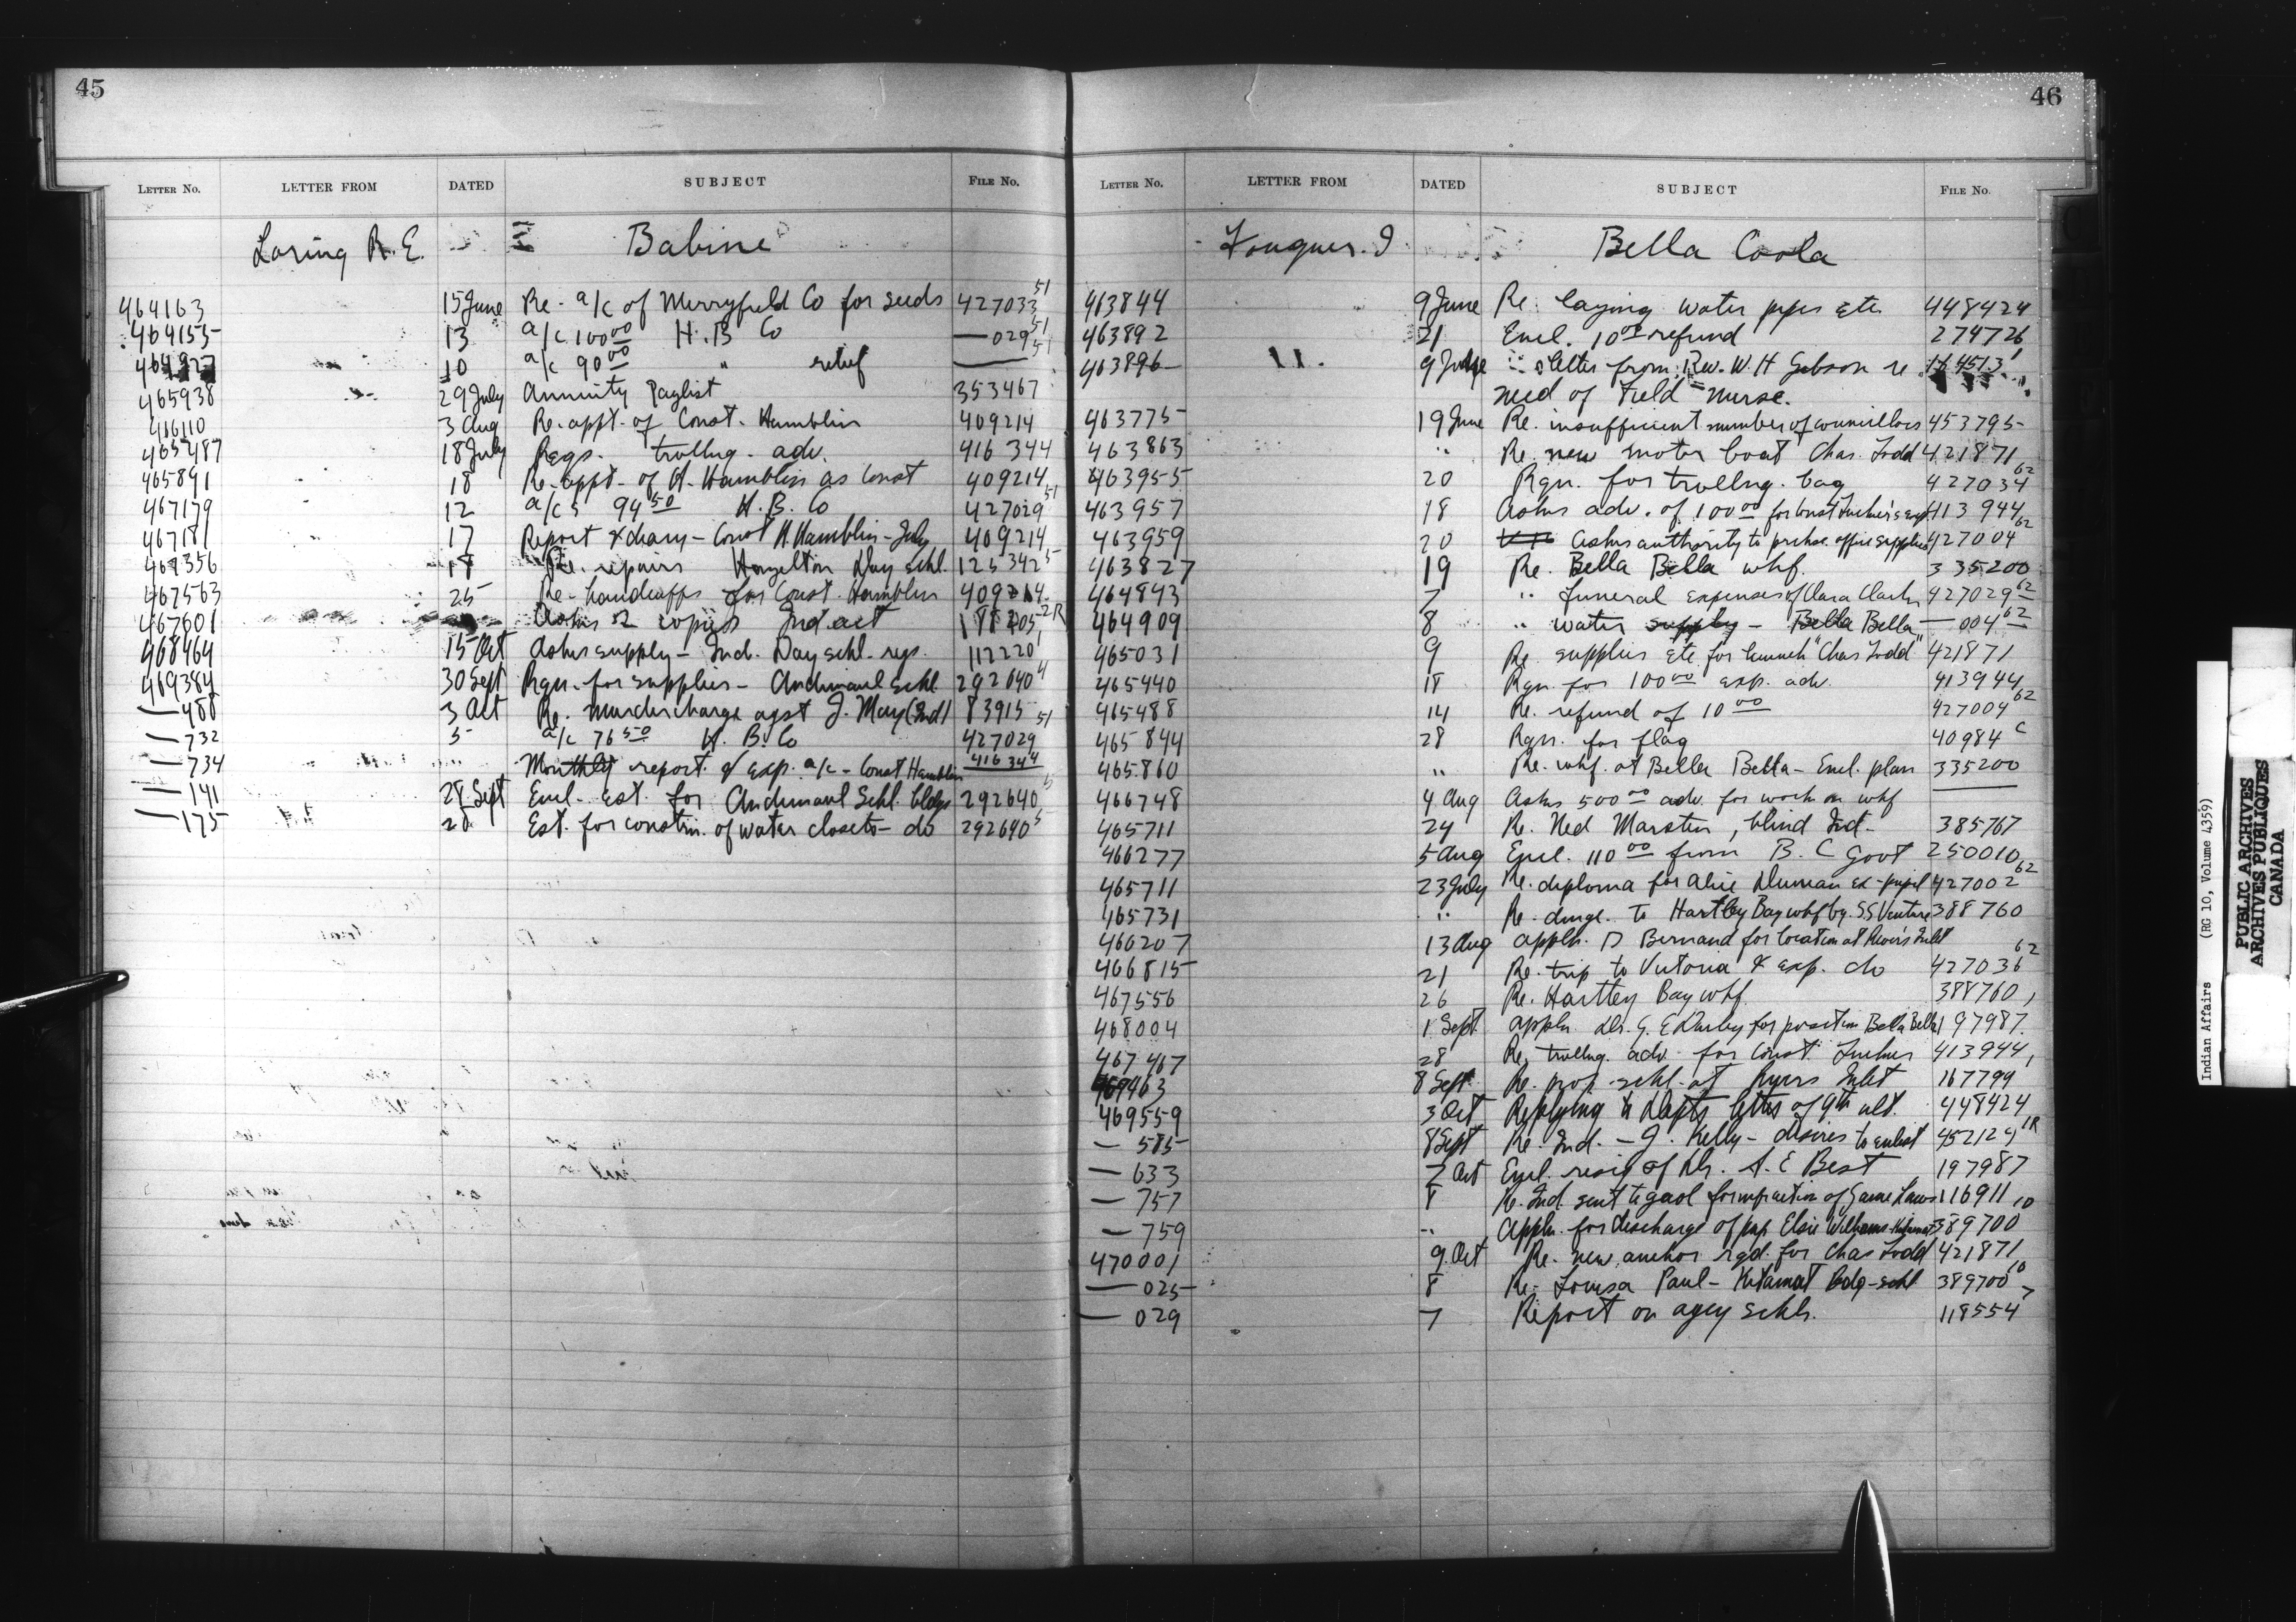 45
LETTER No. LETTER FROM DATED SUBJECT FILE No.
Loring R. E. Babine
464163 15 June Re. a/c of Merryfield Co for seeds 427033 51
464155 13 a/c 100 00 H. B Co — 029 51
10 a/c 90 00 " relief — 51
465938 29 July Annuity Paylist 353467
466110 3 Aug Re. appt. of Const. Hamblin 409214
465487 18 July Reqs. trvllng. adv. 416344
465891 18 Re. appt. of H. Hamblin as Const 409214
467179 12 a/cs 94 50 H. B. Co 427029 51
467181 17 Report & diary - Const H. Hamblin - July 409214
467356 18 Re. repairs Hazelton Day Schl. 125342 5
467563 25 Re. handcuffs for Const. Hamblin 409214
467601 Asks 2 copies Ind. act
468464 15 Oct Asks supply - Ind. Day schl. regs. 112220 1
469384 30 Sept Rqn. for supplies - Andimaul Schl 292640 4
— 480 3 Oct Re. murder charge agst J. May (Ind) 83915
— 732 5 a/c 76 50 H. B. Co 427029 51
— 734 " Monthly report & exp. a/c - Const Hamblin 416344
— 141 28 Sept Encl. est. for Andimaul Schl. bldgs 292640 5
— 175 28 Est. for constn. of water closets - do 292640 5
46
LETTER No. LETTER FROM DATED SUBJECT FILE No.
Fougner. I Bella Coola
463844 9 June Re. laying water pipes etc 448424
463892 21 Encl. 10 00 refund 274726
463896 9 June " letter from Rev. W. H Gibson re
need of Field nurse.
463775 19 June Re. insufficient number of councillors 453795
463863 " Re. new motor boat Chas. Todd 421871
463955 20 Rqn. for trvllng. bag 427034 62
463957 18 Asks adv. of 100 00 for Const 413944
463959 20 Asks authority to prchse. office supplies 427004 62
463827 19 Re. Bella Bella whf. 335200
464843 7 " Funeral expenses of Clara Clark 427029 62
464909 8 " water supply - Bella Bella — 004 62
465031 9 Re. supplies etc. for launch "Chas Todd" 421871
465440 18 Rqn for 100 00 exp. adv. 413944
465488 14 Re. refund of 10 00 427004 62
465844 28 Rqn. for flag 40984 C
465860 " Re. whf. at Bella Bella - Encl. plan 335200
466748 4 Aug Asks 500 00 adv. for work on whf —
465711 24 Re. Ned Marsten, blind Ind. 385767
466277 5 Aug Encl. 110 00 from B. C Govt 250010
465711 23 July Re. diploma for Alice Duncan ex-pupil 427002 62
465731 " Re. dmge. to Hartley Bay whf by S.S Venture 388760
466207 13 Aug Appln. D Bernand for location at River's Inlet
466815 21 Re. trip to Victoria & exp. do 427036 62
467556 26 Re. Hartley Bay whf. 388760
468004 1 Sept. Appln Dr. G. E Darby for position Bella Bella 197987
467467 28 Re. trvllng. adv. for Const. 413944
8 Sept. Re. prop. schl. at Inlet 167799
469559 3 Oct Replying to Depts letter of 9th ult. 448424
— 585 8 Sept Re. Ind. - J. Kelly - desires to enlist 452124 1R
— 633 7 Oct Encl. resig of Dr. A. E Best 197987
— 757 8 Re. Ind. sent to gaol for infraction of Game Laws 116911
— 759 " Appln. for discharge of pup Elsie Williams - Kitamat 389700 10
470001 9. Oct Re. new anchor rqd. for Chas Todd 421871
— 025 8 Re. Louisa Paul - Kitamat Bdg - schl 389700 10
— 029 7 Report on agcy schls. 118554 7
Indian Affairs (RG 10, Volume 4359)
PUBLIC ARCHIVES
ARCHIVES PUBLIQUES
CANADA